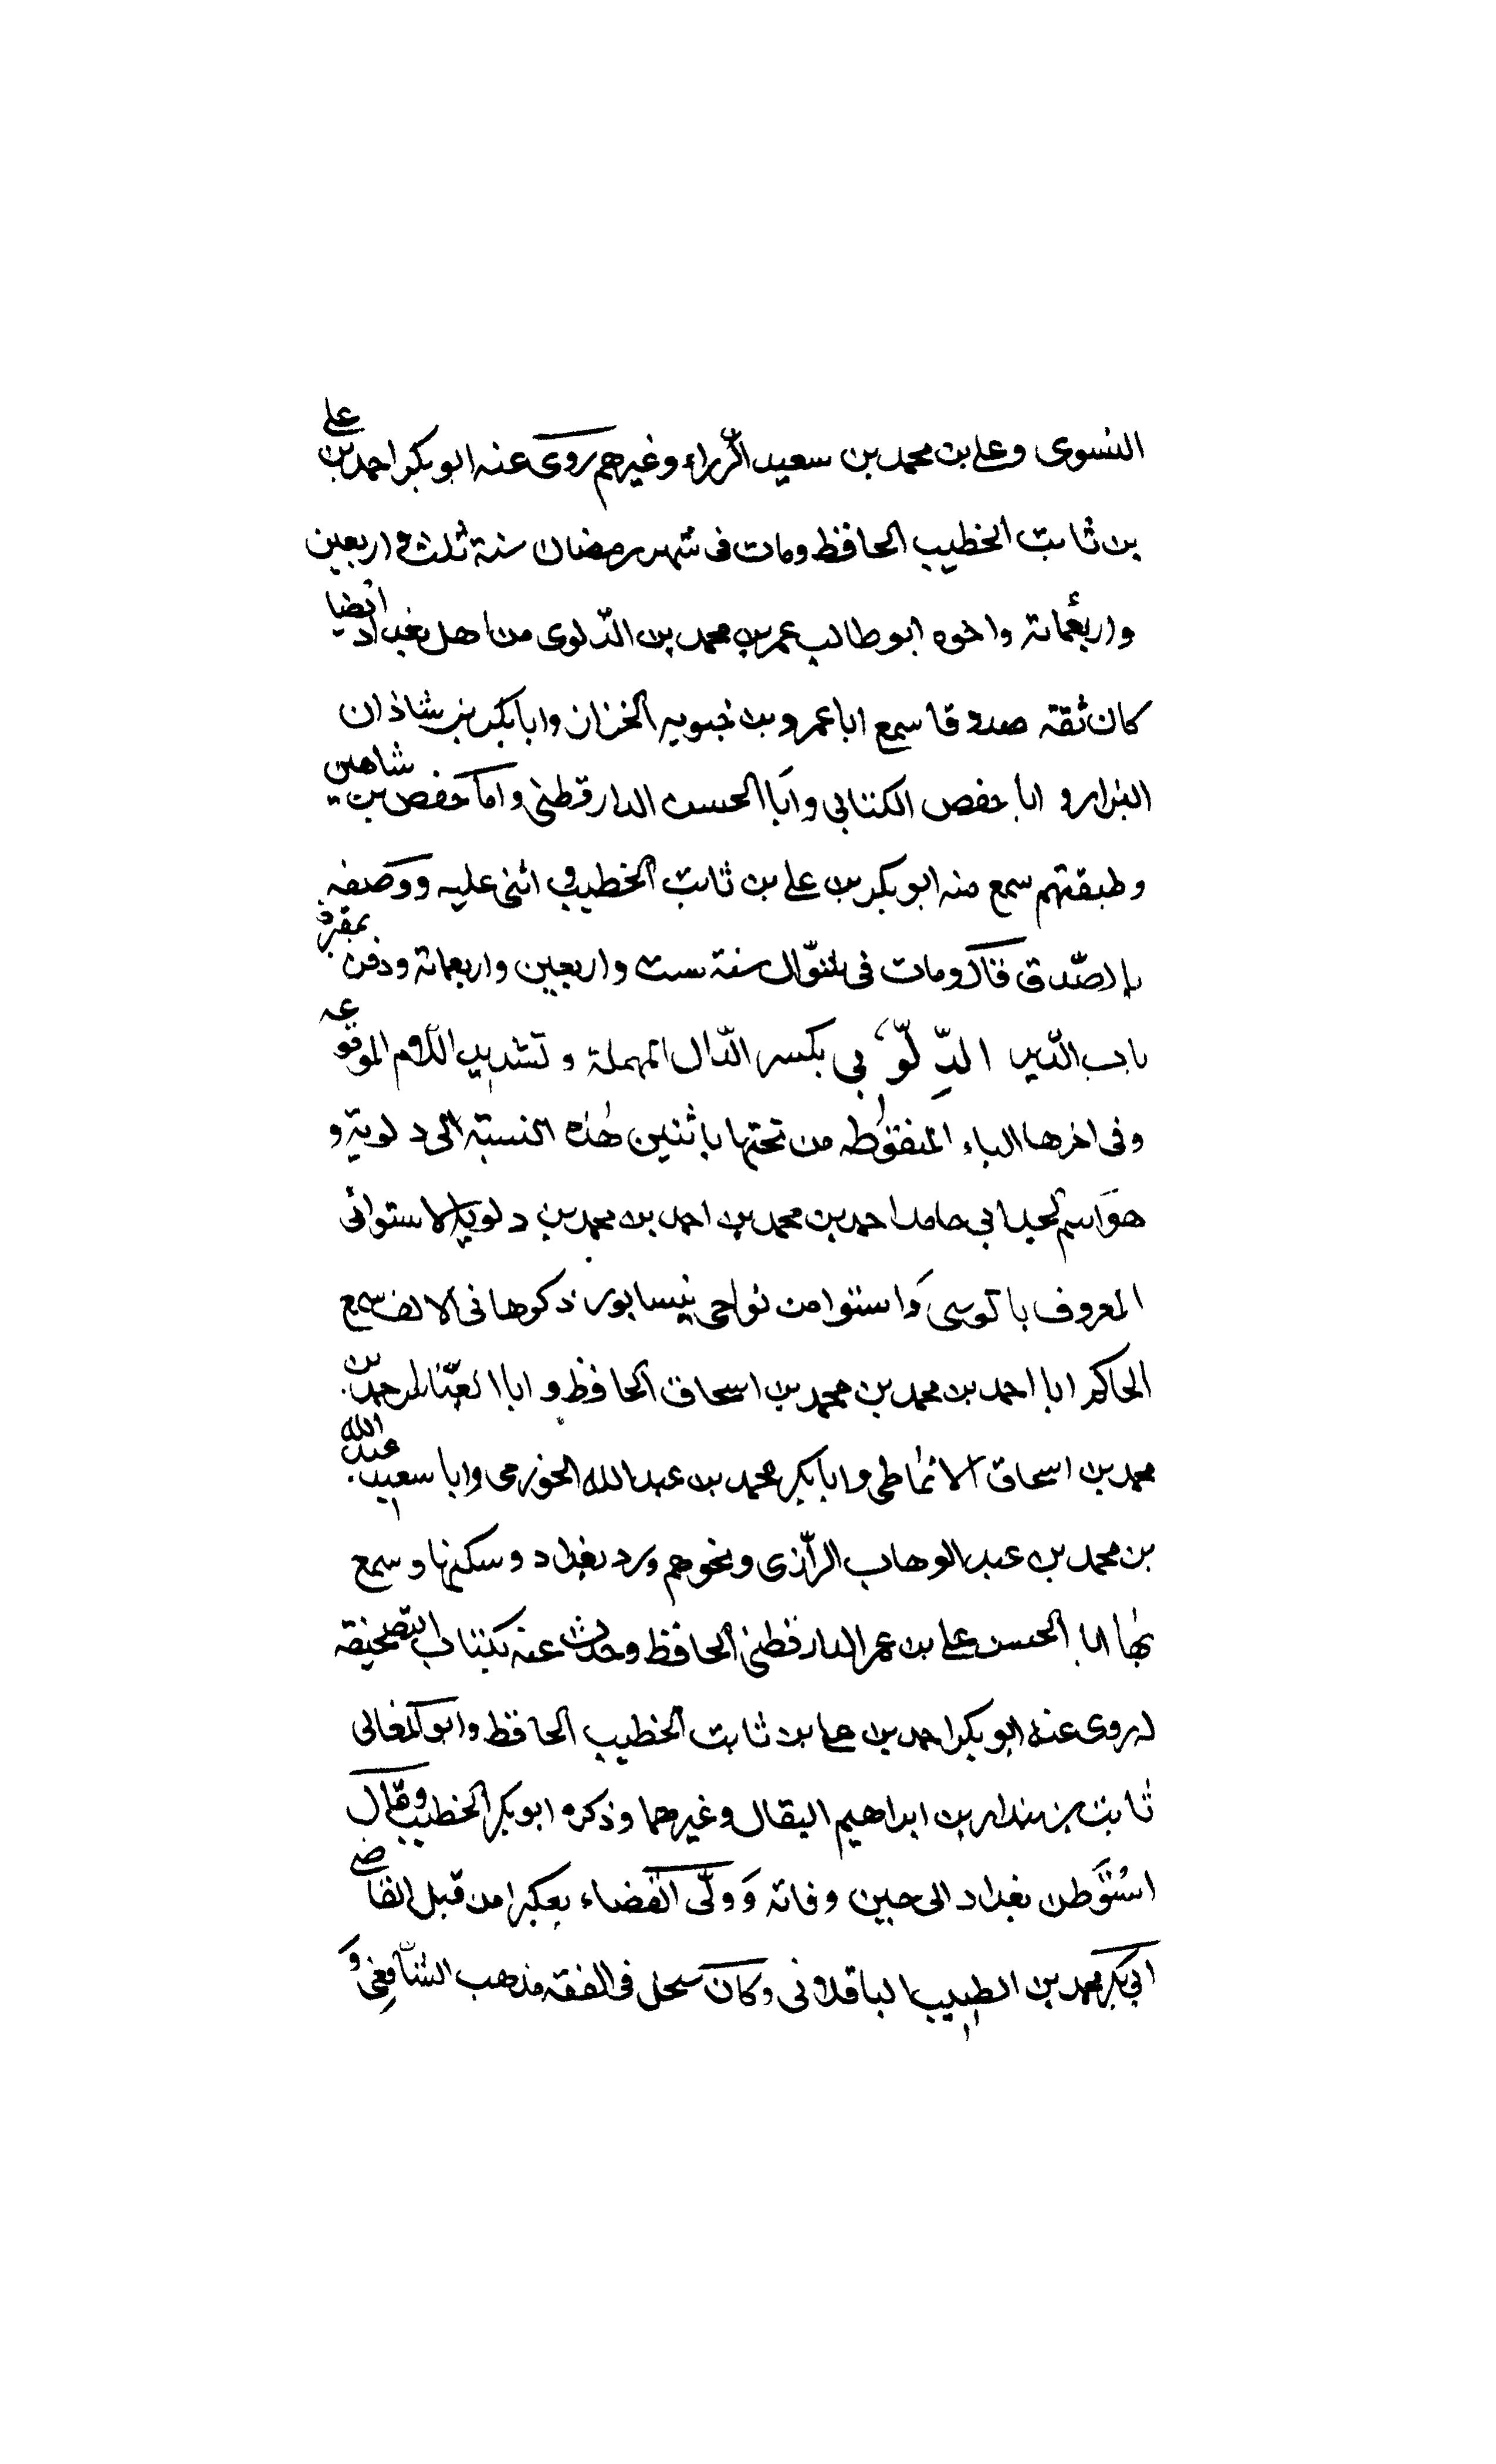 النسوى وعلى بن محمد بن سعيد الرزاء وغيرهم روى عنه ابو بكر احمد بن على
بن ثابت الخطيب الحافظ ومات فى شهر رمضان سنة ثلث و اربعين
واربعمائة واخوه ابو طالب عمر بن محمد بن الدلوى من اهل بغداد ايضا
كان ثقة صدوقا سمع ابا عمرو بن حبويه الخزاز وابا بكر بن شاذان
البزار و ابا حفص الكتابى وابا الحسن الدارقطنى واما حفص بن شاهين
وطبقتهم سمع منه ابو بكر بن على بن ثابت الخطيب و اثنى عليه ووصفه
بالصدق قال ومات فى شوال سنة ست واربعين واربعمائة ودفن بمقبرة
باب الدير الدِّلّوُبى بكسر الدال المهملة و تشديد اللام الموقوعه
وفى اخرها الياء المنقوطه من تحتها باثنين هذه النسبة الى دلوية و
هو اسم لجد ابى حامد احمد بن محمد بن احمد بن محمد بن دلويه الاستوائى
المعروف با لوسى وَاستوا من نواحى نيسابور ذكرها فى الالف سمع
الحاكم ابا احمد بن محمد بن محمد بن اسحاق الحافظ و ابا العباس احمد بن
محمد بن اسحاق الانماطى وابا بكر محمد بن عبد الله الجوزمى وابا سعيد عبد الله
بن محمد بن عبد الوهاب الرازى ونحوهم ورد بغداد وسكنها وسمع
بها ابا الحسن على بن عمر الدارقطنى الحافظ وحدث عنه بكتاب التصحيفة
له روى عنه ابو بكر احمد بن على بن ثابت الخطيب الحافظ وابو المعالى
ثابت بن بندار بن ابراهيم البقال وغيرهما وذكره ابو بكر الخطيب وقال
استوطن بغداد الى حين وفاته وَ وولى القضاء بعكبرا من قبل القاضى
ابى بكر محمد بن الطيب الباقلانى وكان ينتحل فى الفقه مذهب الشافعى وَ